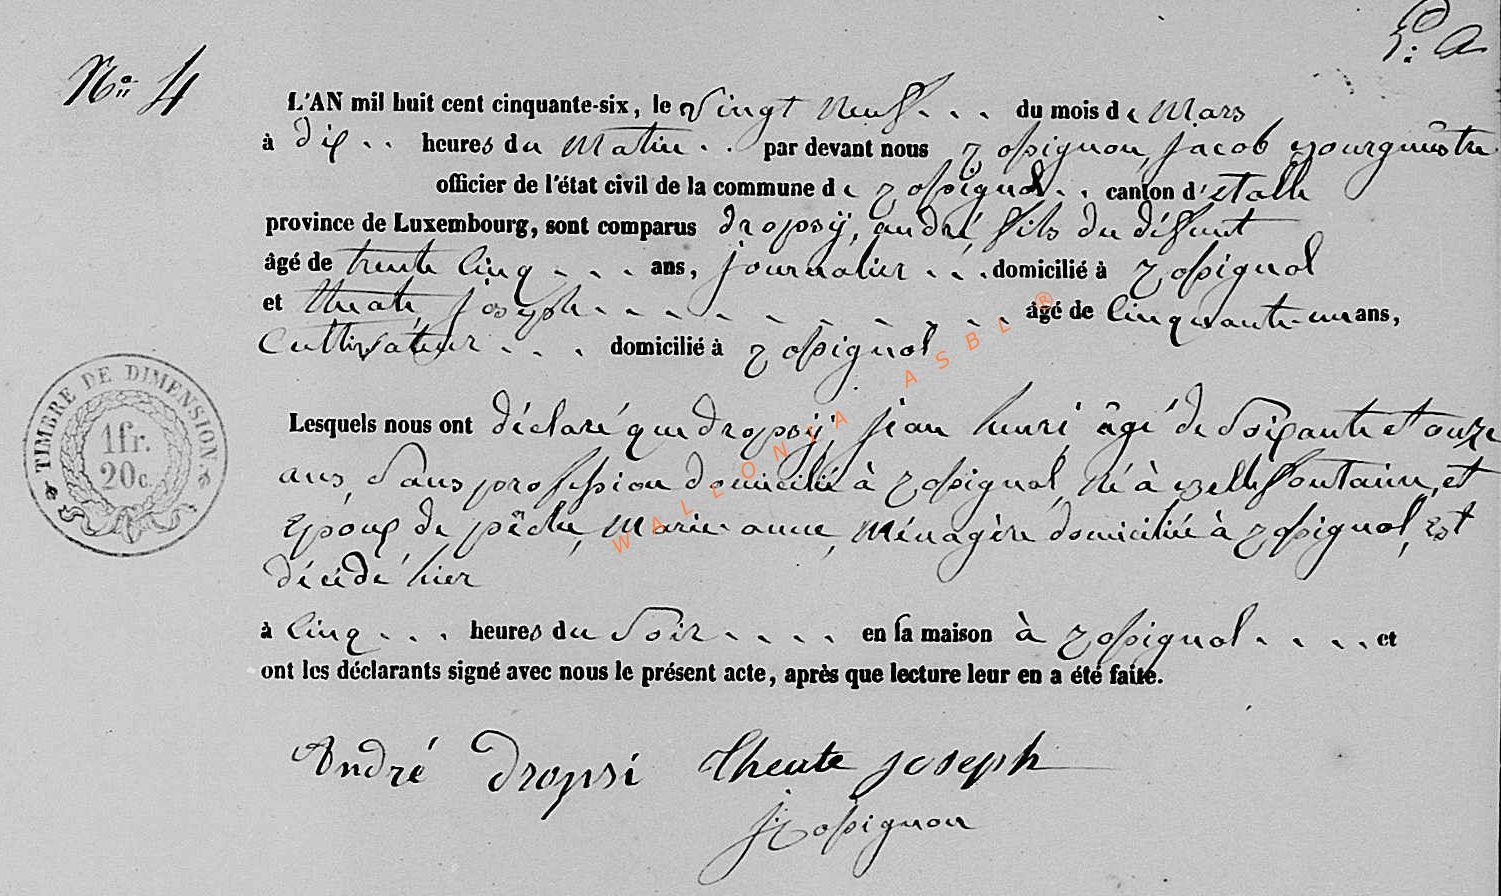 N° 4
L'AN mil huit cent cinquante-six, le vingt neuf . . . du mois de Mars
à dix . . heures du Matin . . par devant nous rossignon, jacob bourgmestre
officier de l'état civil de la commune de rossignol . . canton d'étalle
province de Luxembourg, sont comparus dropsy, andré, fils du défunt
âgé de trente cinq . . . ans, journalier . . . domicilié à rossignol
et joseph . . . . . . . . . . âgé de cinquante-un ans,
Cultivateur . . . domicilié à rossignol
Lesquels nous ont déclaré que dropsy, jean henri, âgé de soixante et onze
ans, sans profession domicilié à rossignol, né à bellefontaine, et
époux de pêche, Marie-anne, Ménagère domiciliée à rossignol, est
décédé hier
à cinq . . . heures du soir . . . . en sa maison à rossignol . . . . et
ont les déclarants signé avec nous le présent acte, après que lecture leur en a été faite.
André dropsi joseph
J. rossignon
TIMBRE DE DIMENSION
1fr.
20c.
WALLONIA ASBL ®